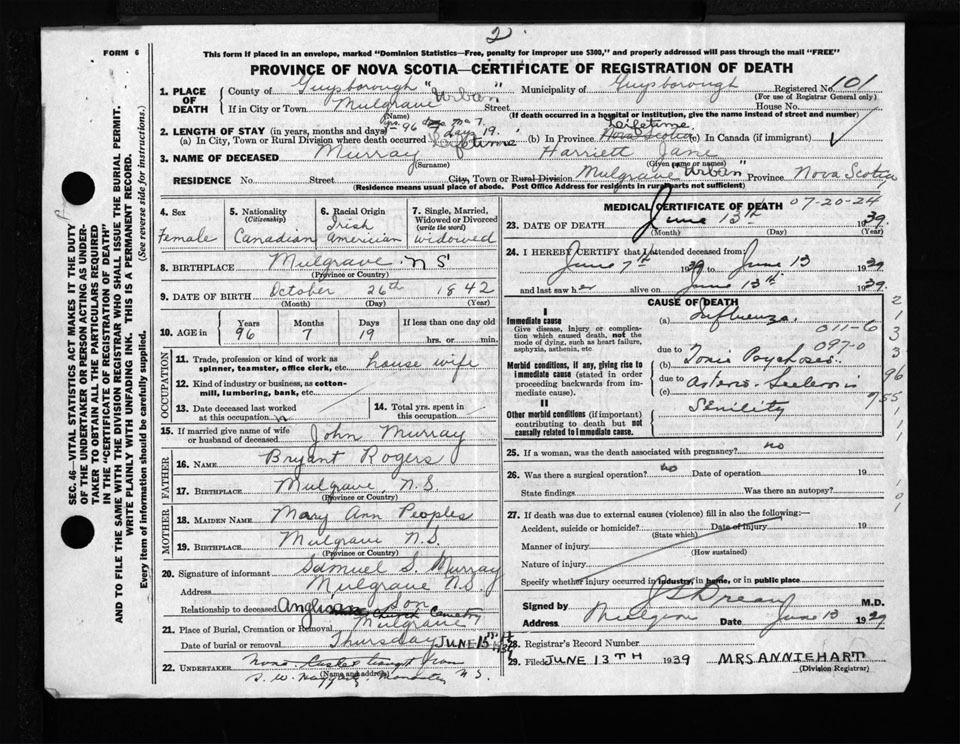 2
FORM 6
This form if placed in an envelope, marked "Dominion Statistics—Free, penalty for improper use $300," and properly addressed will pass through the mail "FREE"
PROVINCE OF NOVA SCOTIA—CERTIFICATE OF REGISTRATION OF DEATH
1. PLACE OF DEATH
County of Guysborough "Urban" Municipality of Guysborough Registered No. 101
(For use of Registrar General only)
If in City or Town Mulgrave Street House No.
(Name) (If death occurred in a hospital or institution, give the name instead of street and number)
2. LENGTH OF STAY (in years, months and days) 96 mo 7. days 19. Lifetime
(a) In City, Town or Rural Division where death occurred Lifetime (b) In Province Nova Scotia (c) In Canada (if immigrant)
3. NAME OF DECEASED Murray Harriett Jane
(Surname) (Given name or names)
RESIDENCE No. Street City, Town or Rural Division Mulgrave "Urban" Province Nova Scotia
(Residence means usual place of abode. Post Office Address for residents in rural parts not sufficient)
4. Sex Female
5. Nationality (Citizenship) Canadian
6. Racial Origin Irish American
7. Single, Married, Widowed or Divorced (write the word) Widowed
8. BIRTHPLACE Mulgrave N S
(Province or Country)
9. DATE OF BIRTH October 26th 1842
(Month) (Day) (Year)
10. AGE in Years 96 Months 7 Days 19 If less than one day old
hrs. or min.
OCCUPATION
11. Trade, profession or kind of work as spinner, teamster, office clerk, etc. house wife
12. Kind of industry or business, as cotton-mill, lumbering, bank, etc.
13. Date deceased last worked at this occupation
14. Total yrs. spent in this occupation
15. If married give name of wife or husband of deceased John Murray
FATHER
16. NAME Bryant Rogers
17. BIRTHPLACE Mulgrave, N.S.
(Province or Country)
MOTHER
18. MAIDEN NAME Mary Ann Peoples
19. BIRTHPLACE Mulgrave N.S.
(Province or Country)
20. Signature of informant Samuel S. Murray
Address Mulgrave N.S.
Relationship to deceased Son
Anglican Church Cemetery
21. Place of Burial, Cremation or Removal Mulgrave
Date of burial or removal Thursday JUNE 15TH 1939
22. UNDERTAKER None. Casket bought from
(Name and address) N.S.
MEDICAL CERTIFICATE OF DEATH
07-20-24
23. DATE OF DEATH June 13th 1939
(Month) (Day) (Year)
24. I HEREBY CERTIFY that I attended deceased from:
June 7th 1939 to June 13 1939
and last saw her alive on June 13th 1939.
CAUSE OF DEATH
I
Immediate cause
Give disease, injury or complication which caused death, not the mode of dying, such as heart failure, asphyxia, asthenia, etc
(a) Influenza.
011-6
due to
097-0
Morbid conditions, if any, giving rise to immediate cause (stated in order proceeding backwards from immediate cause).
(b) Toxic Psychoses.
due to
(c) Arterio-Sclerosis
II
Other morbid conditions (if important) contributing to death but not causally related to immediate cause.
Senility
2
1
3
3
96
755
1
1
1
0
1
25. If a woman, was the death associated with pregnancy? no
26. Was there a surgical operation? no Date of operation 19
State findings Was there an autopsy?
27. If death was due to external causes (violence) fill in also the following:—
Accident, suicide or homicide? Date of injury 19
(State which)
Manner of injury
(How sustained)
Nature of injury
Specify whether injury occurred in industry, in home, or in public place
Signed by M.D.
Address Mulgrave Date June 13 1939
28. Registrar's Record Number
29. Filed JUNE 13TH 1939 MRS ANNIE HART
(Division Registrar)
SEC. 46—VITAL STATISTICS ACT MAKES IT THE DUTY
OF THE UNDERTAKER OR PERSON ACTING AS UNDER-
TAKER TO OBTAIN ALL THE PARTICULARS REQUIRED
IN THE "CERTIFICATE OF REGISTRATION OF DEATH"
AND TO FILE THE SAME WITH THE DIVISION REGISTRAR WHO SHALL ISSUE THE BURIAL PERMIT.
WRITE PLAINLY WITH UNFADING INK. THIS IS A PERMANENT RECORD.
Every item of information should be carefully supplied. (See reverse side for instructions.)